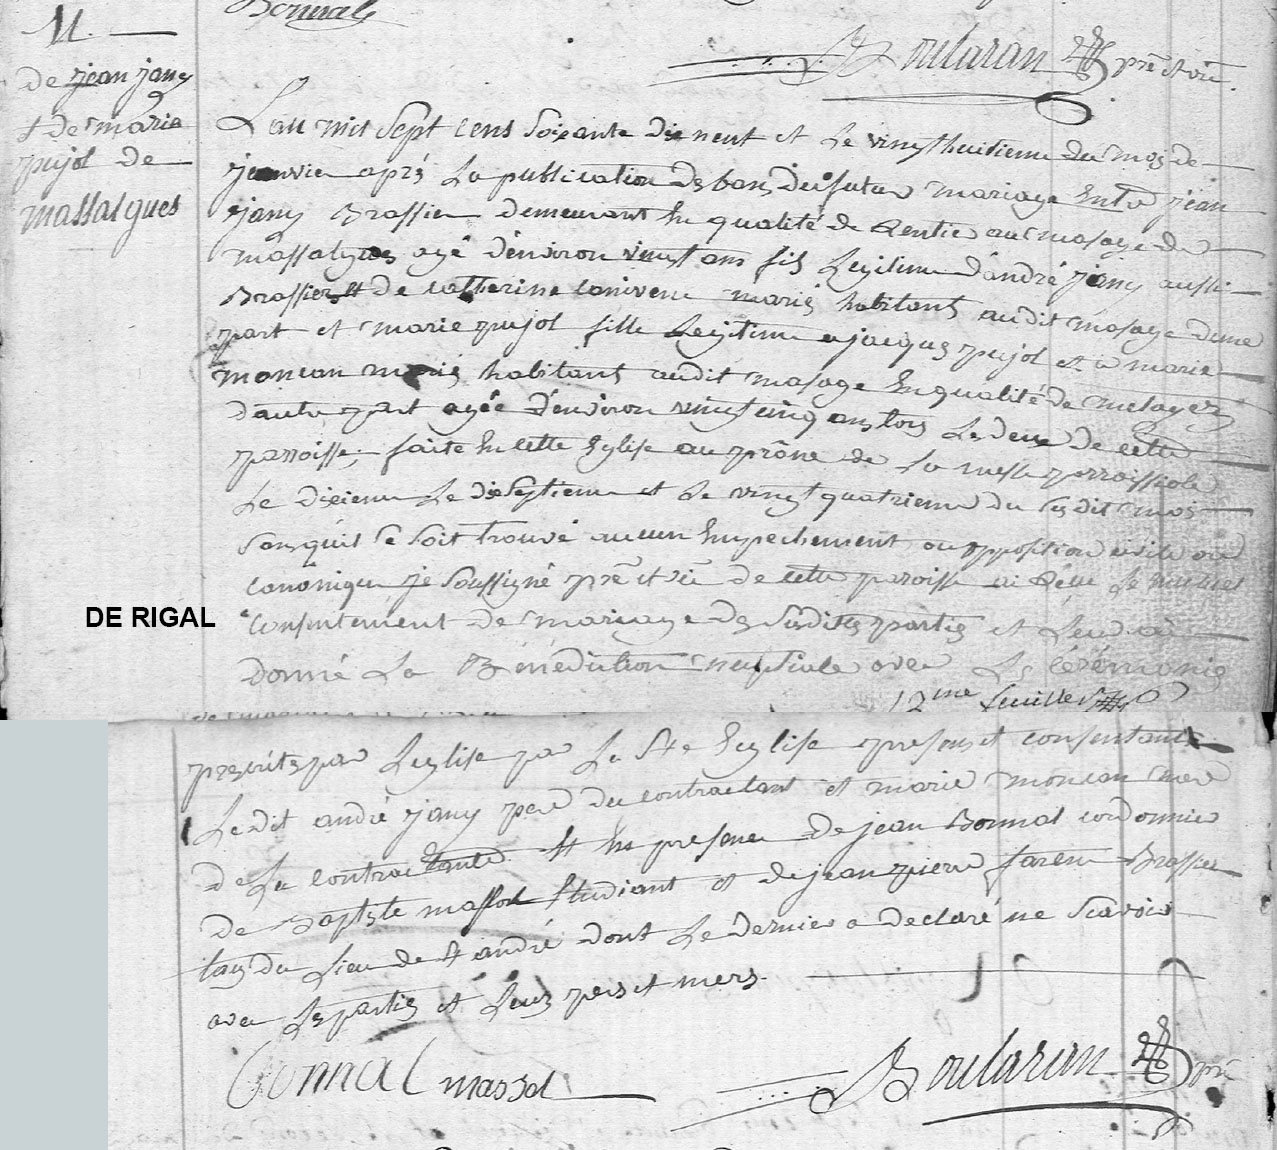 Bonnal
Boularan prêt vic
M.
de jean jany
& de marie
pujol de
massalgues
L'an mil sept cens soixante dix neuf et le vingthuitieme du mois de
janvier après la publication des bans du futur mariage entre jean
jany Brassier demeurant en qualité de Rentier au masage de
massalgues agé d'environ vingt ans fils legitime d'andré jany aussi
Brassier et de catherine mariés habitans audit masage d'une
part et marie pujol fille legitime a jacques pujol et a marie
moncan mariés habitans audit masage en qualité de metayers
d'autre part agée d'environ vingt cinq ans tous les deux de cette
parroisse, faite en cette Eglise au prône de la messe parroissiale
le dixieme le dixseptieme et le vingt quatrieme du susdit mois
sans qu'il se soit trouvé aucun empechement ou opposition civile ou
canonique je soussigné prêt et vic de cette paroisse ai Réçu le mutuel
DE RIGAL
consentement de mariage des susdittes parties et leur ai
donné la Bénédiction nuptiale avec les cérémonies
12me feuille
prescrites par L'eglise par la Ste Eglise presens et consentants
le dit andré jany pere du contractant et marie moncan mere
de la contractante et en presence de jean Bonnal cordonnier
de Baptiste massol Etudiant et de jean pierre farem Brassier
tous du lieu de St andré dont le dernier a declaré ne scavoir
avec les parties et leurs peres et meres.
Bonnal massol Boularan prê